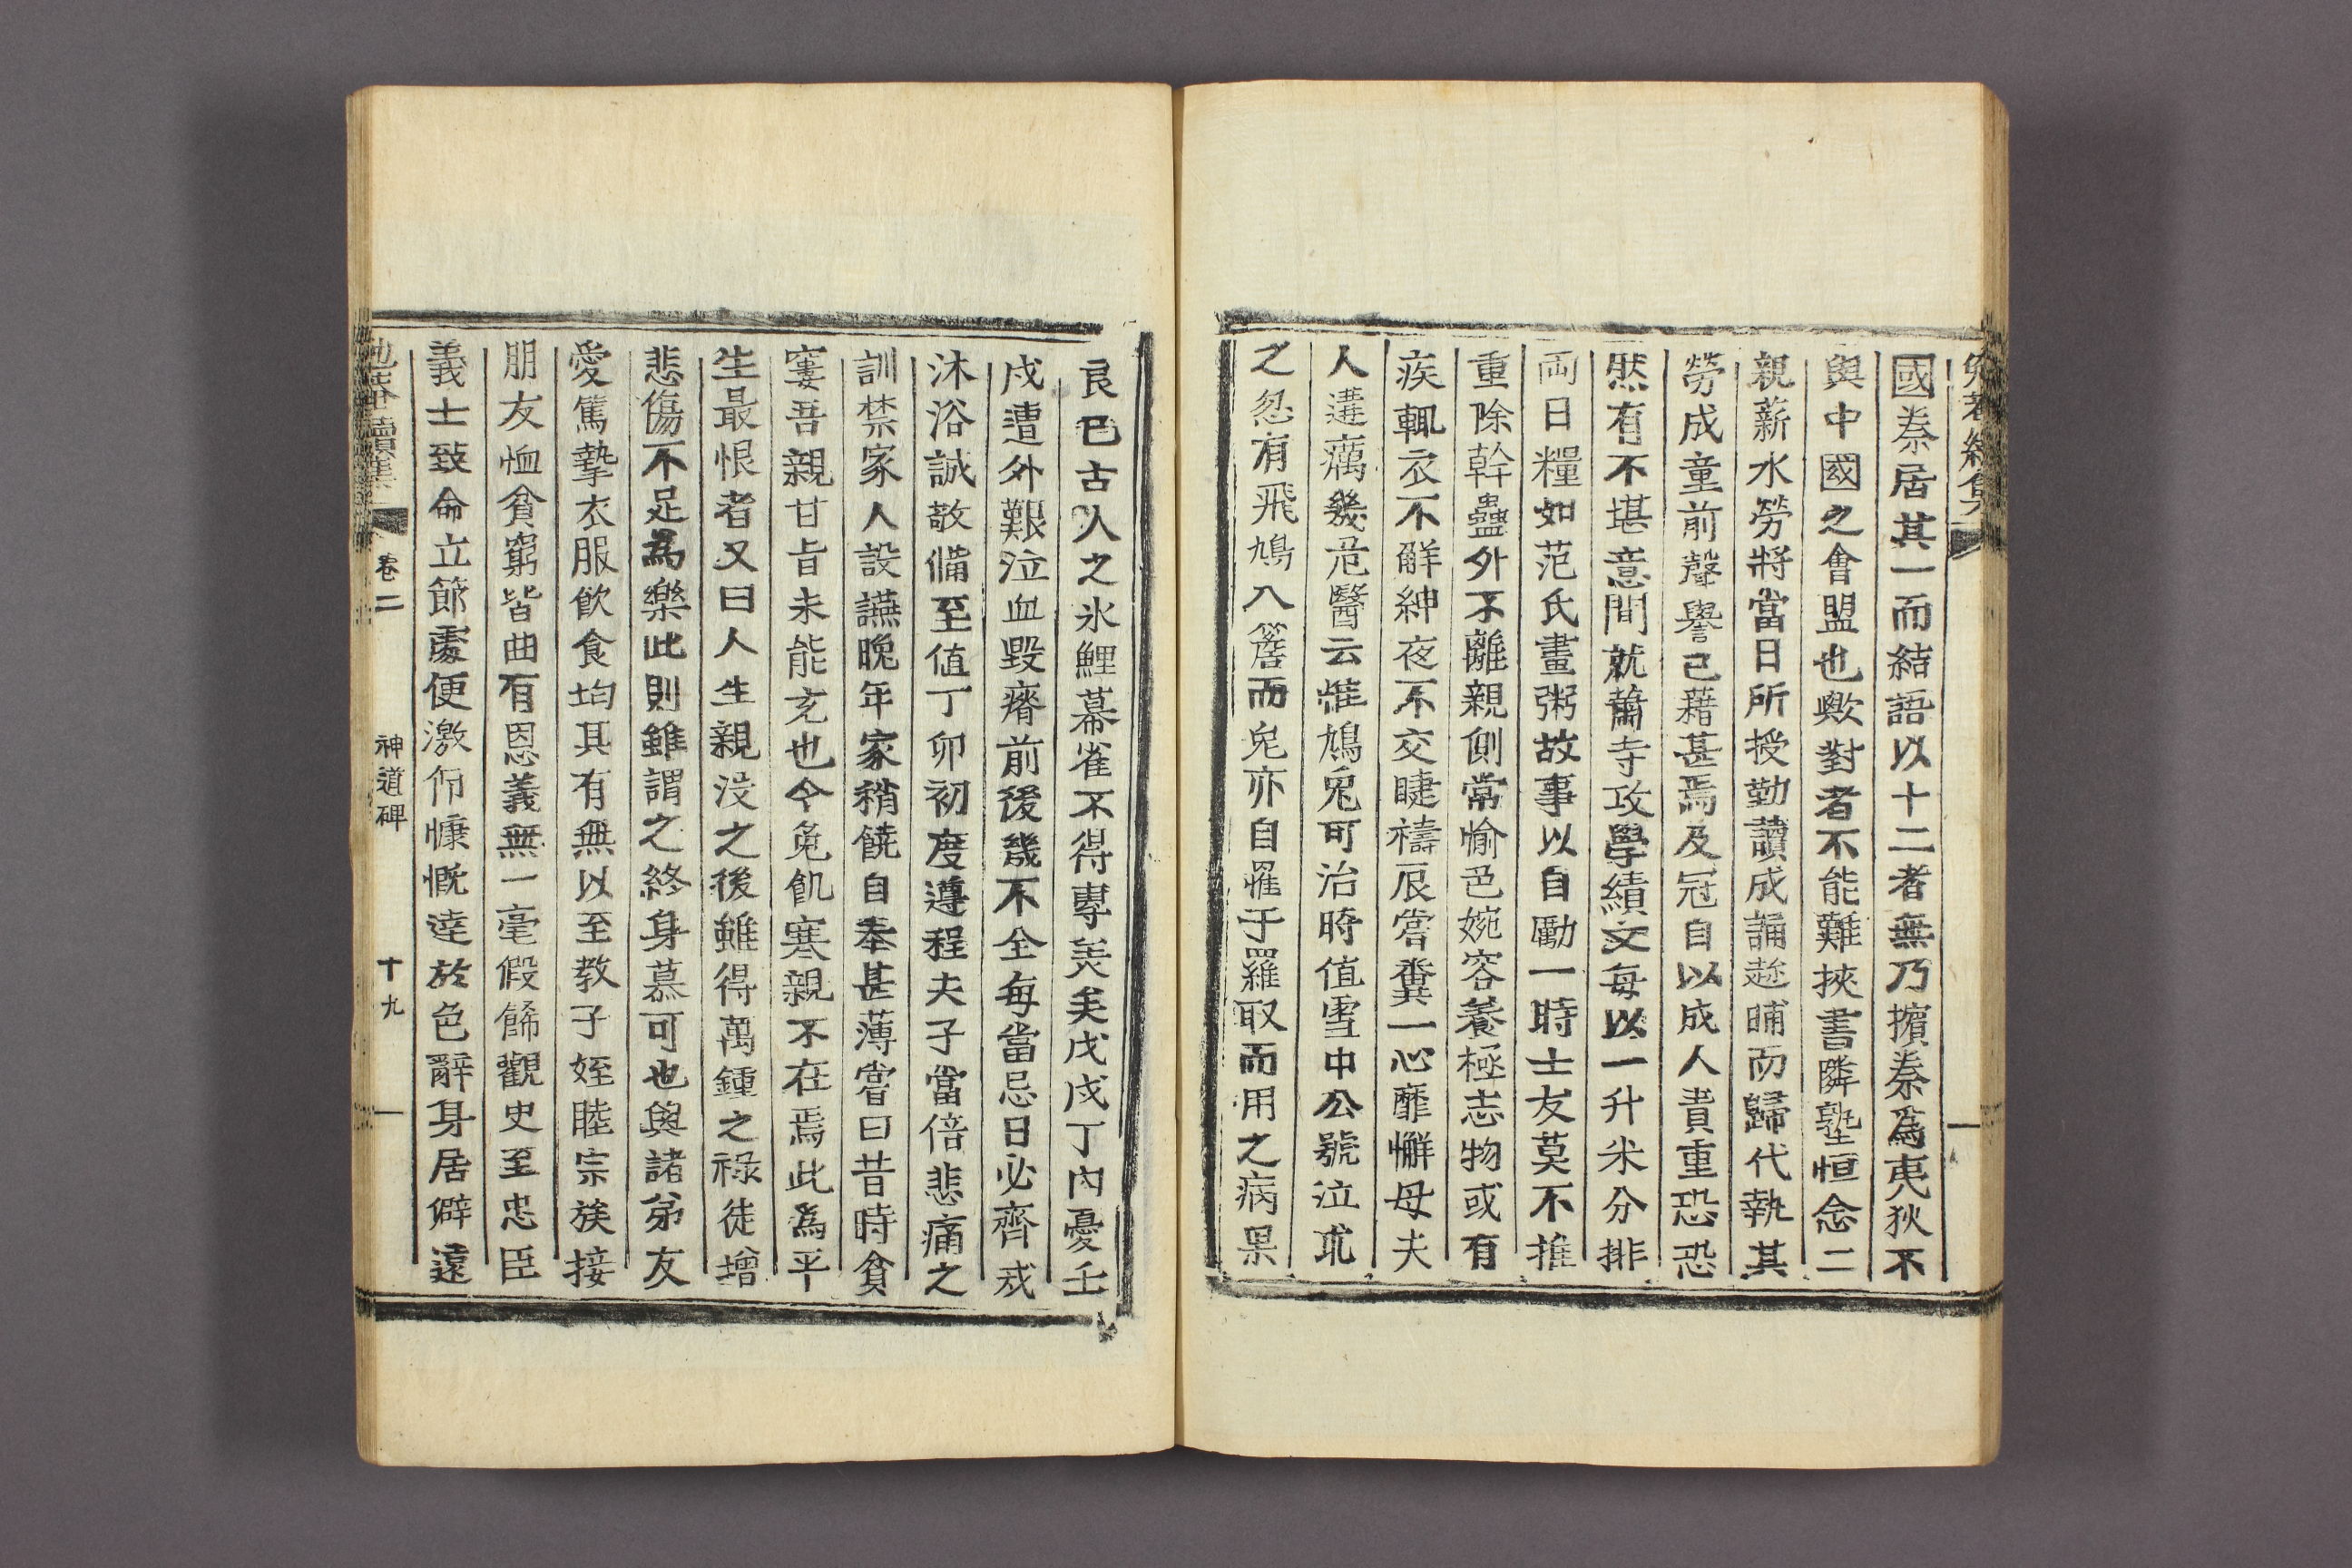 國秦居其一而結語以十二者無乃擯秦爲夷狄不
與中國之會盟也歟對者不能難挾書隣塾恒念二
親薪水勞將當日所授勤讀成誦趂晡而歸代執其
勞成童前聲譽已藉甚焉及冠自以成人責重恐恐
然有不堪意間就蕭寺攻學績文每以一升米分排
両日糧如范氏畫粥故事以自勵一時士友莫不推
重除幹蠱外不離親側常愉色婉容養極志物或有
疾輒衣不解紳夜不交睫禱辰嘗糞一心靡懈母夫
人遘癘幾危醫云惟鳩兎可治時值雪中公號泣求
之忽有飛鳩入簷而兎亦自罹于羅取而用之病果
良已古人之氷鯉幕雀不得專美矣戊戌丁內憂壬
戌遭外艱泣血毀瘠前後幾不全每當忌日必齊戒
沐浴誠敬備至値丁卯初度遵程夫子當倍悲痛之
訓禁家人設讌晩年家稍饒自奉甚薄嘗曰昔時貧
窶吾親甘旨未能充也今免飢寒親不在焉此爲平
生最恨者又曰人生親没之後雖得萬鍾之祿徒增
悲傷不足爲樂此則雖謂之終身慕可也與諸弟友
愛篤摯衣服飮食均其有無以至敎子姪睦宗族接
朋友恤貧窮皆曲有恩義無一毫假餙觀史至忠臣
義士致命立節處便激仰慷慨達於色辭身居僻遠
卷二 神道碑 十九